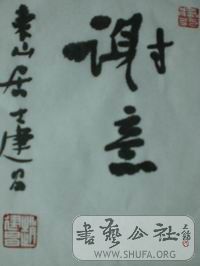 谢意
东山居士建
書藝公社
WWW.SHUFA.ORG